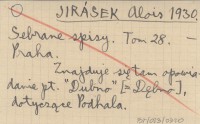 JIRÁSEK Alois 1930.
Sebrane spisy. Tom 28. -
Praha.
Znajduje się tam opowia-
danie pt. "Dubno" [= Dębno],
dotyczące Podhala.